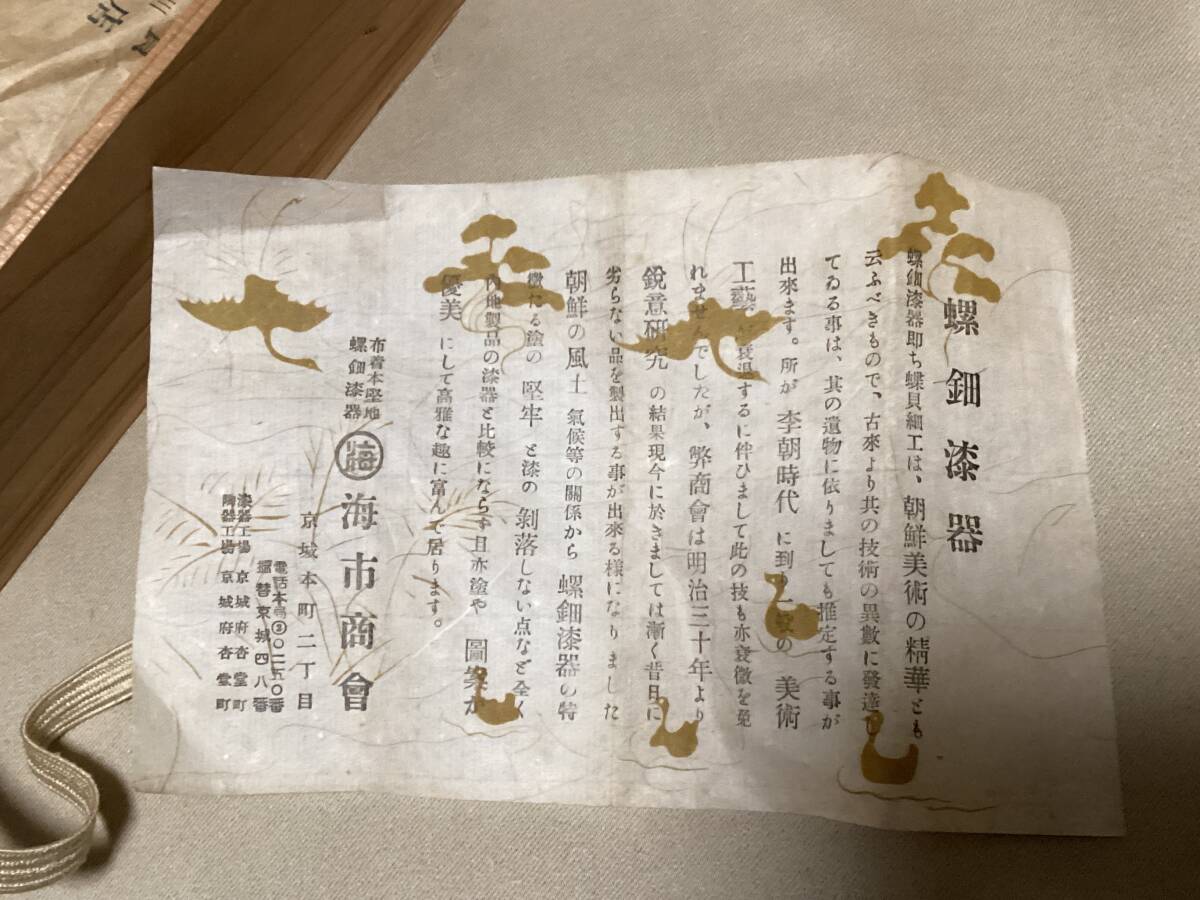 螺鈿漆器
螺鈿漆器卽ち蝶貝細工は、朝鮮美術の精華とも
云ふべきもので、古來より其の技術の異數に發達し
てゐる事は、其の遺物に依りましても推定する事が
出來ます。所が李朝時代に到り一般の美術
工藝が衰退するに伴ひまして此の技も亦衰微を免
れませんでしたが、弊商會は明治三十年より
銳意硏究の結果現今に於きましては漸く昔日に
劣らない品を製出する事が出來る樣になりました
朝鮮の風土氣候等の關係から螺鈿漆器の特
徵たる塗の堅牢と漆の剝落しない点など全く
內地製品の漆器と比較にならず且亦塗や圖案が
優美にして高雅な趣に富んで居ります。
布着本堅地
螺鈿漆器
海市商會
京城本町二丁目
電話本局②〇二五〇番
振替京城四八番
漆器工場 京城府杏堂町
陶器工場 京城府杏堂町
店